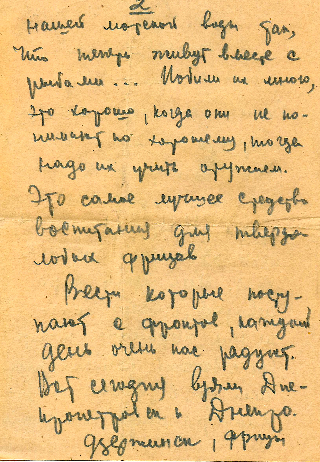 2
нашей морской воды так,
что теперь живут вместе с
рыбами... Побили их много,
это хорошо, когда они не по-
нимают по хорошему, тогда
надо их учить оружием.
Это самое лучшее средство
воспитания для твердо-
лобых фрицев
Вести которые посту-
пают с фронтов, каждый
день очень нас радуют.
Вот сегодня взяли Дне-
пропетровск и Днепро-
дзержинск, фрицы